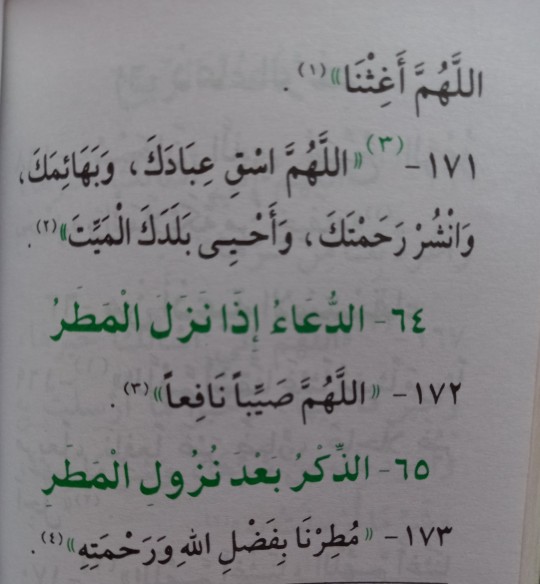 اللَّهُمَّ أَغِثْنَا»(١).
١٧١-(٣)«اللَّهُمَّ اسْقِ عِبَادَكَ، وَبَهَائِمَكَ،
وَانْشُرْ رَحَمْتَكَ، وَأَحْيِى بَلَدَكَ الْمَيِّتَ»(٢).
٦٤- الدُّعَاءُ إِذَا نَزَلَ الْمَطَرُ
١٧٢- «اللَّهُمَّ صَيِّباً نَافِعاً»(٣).
٦٥- الذِّكْرُ بَعْدَ نُزُولِ الْمَطَرِ
١٧٣- «مُطِرْنَا بِفَضْلِ اللهِ وَرَحْمَتِهِ»(٤).